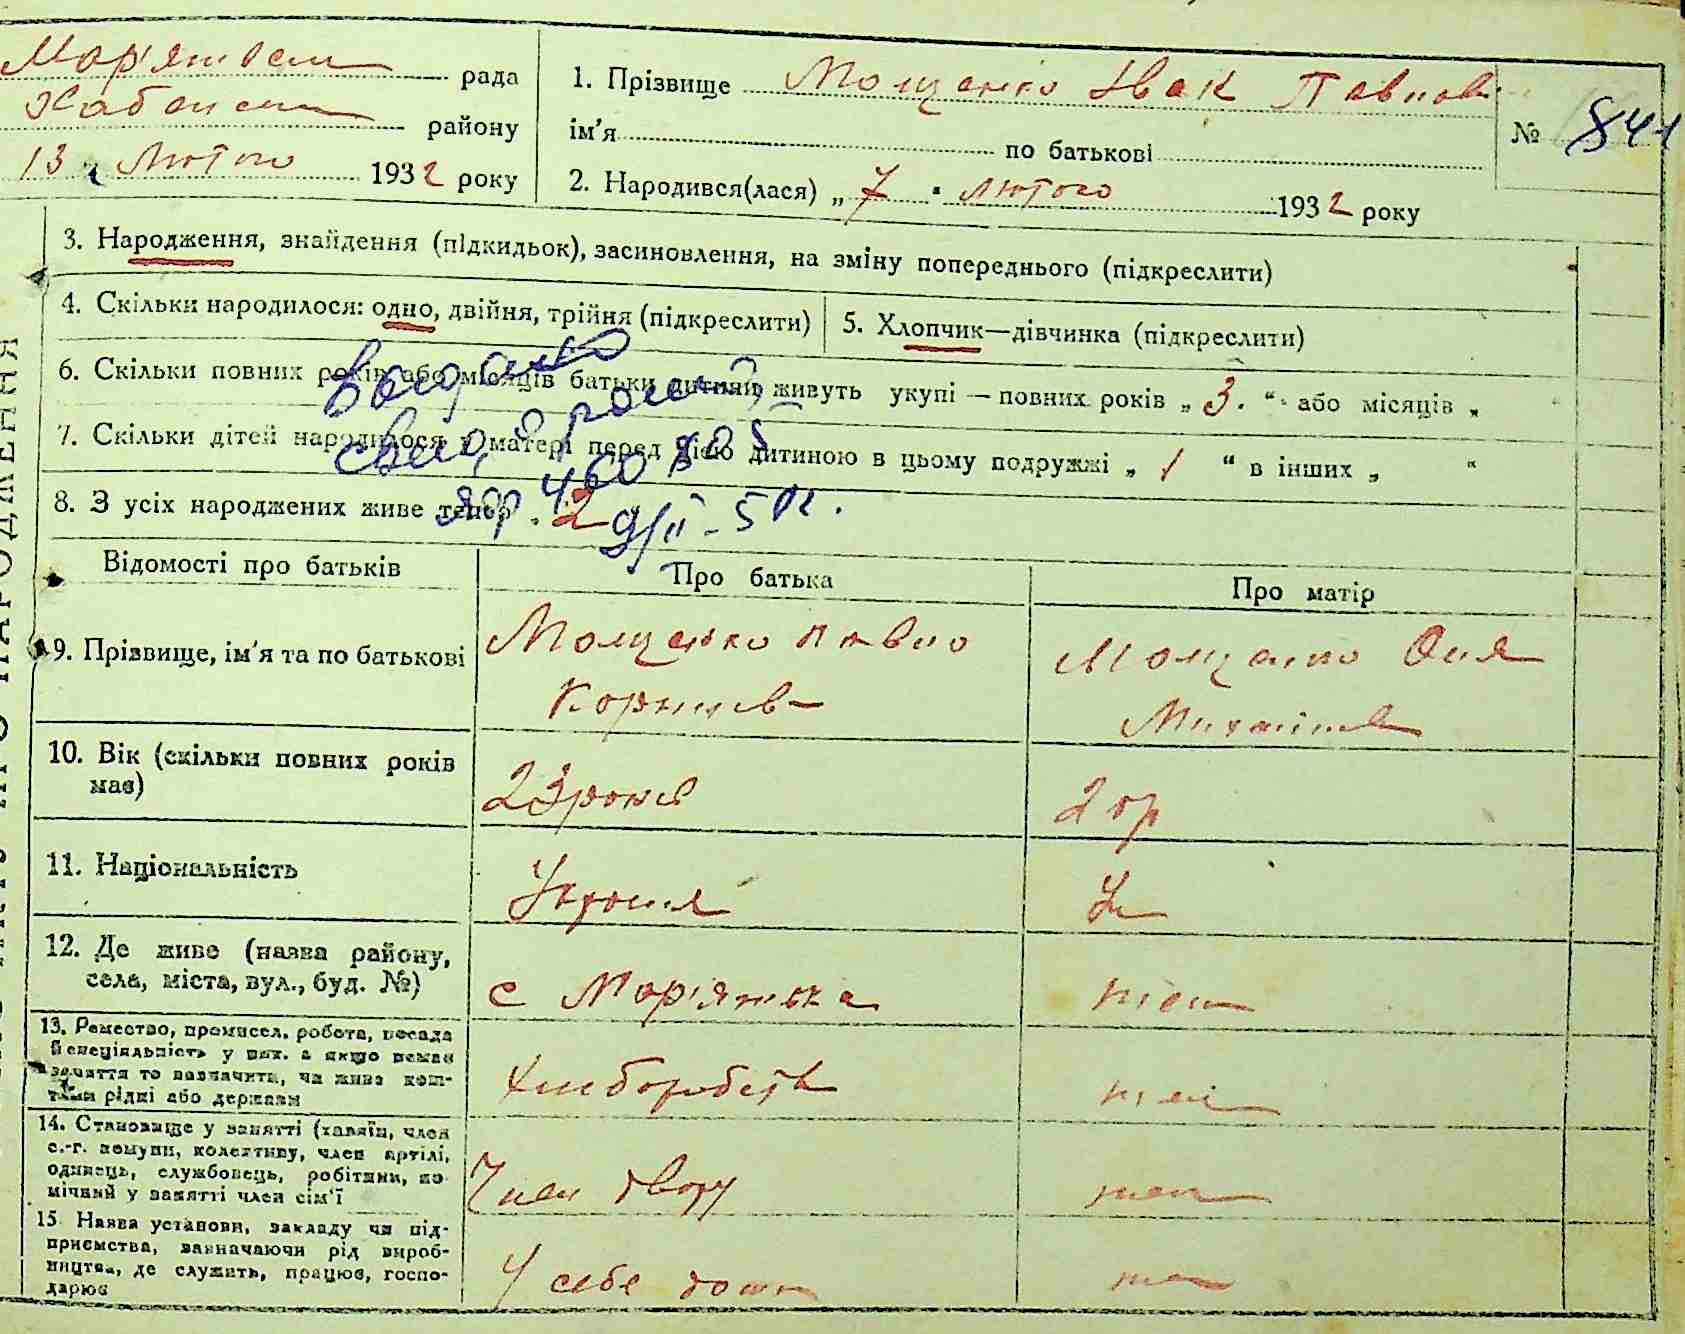 Мар'янівськ рада
Хабенськ району
13 Лютого 1932 року
1. Прізвище Мощенко Іван Павлов
ім'я по батькові
№ 841
2. Народився(лася) „ 7 " лютого 1932 року
3. Народження, знайдення (підкидьок), засиновлення, на зміну попереднього (підкреслити)
4. Скільки народилося: одно, двійня, трійня (підкреслити)
5. Хлопчик—дівчинка (підкреслити)
6. Скільки повних років або місяців батьки дитини живуть укупі — повних років „ 3. “ або місяців „
7. Скільки дітей народилося у матері перед цією дитиною в цьому подружжі „ 1 “ в інших „ “
8. З усіх народжених живе тепер „ 2
Відомості про батьків
Про батька
Про матір
9. Прізвище, ім'я та по батькові
Мощенко Павло
Корнієв
Мощенко
10. Вік (скільки повних років має)
23 роки
20р
11. Національність
12. Де живе (назва району,
села, міста, вул., буд. №)
с Мар'янівка
13. Ремество, промисел, робота, посада
й спеціяльність у них, а якщо немає
заняття то зазначити, чи живе кош-
тами рідні або держави
Хліборобств
14. Становище у занятті (хазяїн, член
с.-г. комуни, колективу, член артілі,
одинець, службовець, робітник, по
мічний у занятті член сім'ї
Член двору
15 Назва установи, закладу чи під-
приємства, зазначаючи рід вироб-
ництва, де служить, працює, госпо-
дарює
У себе дома